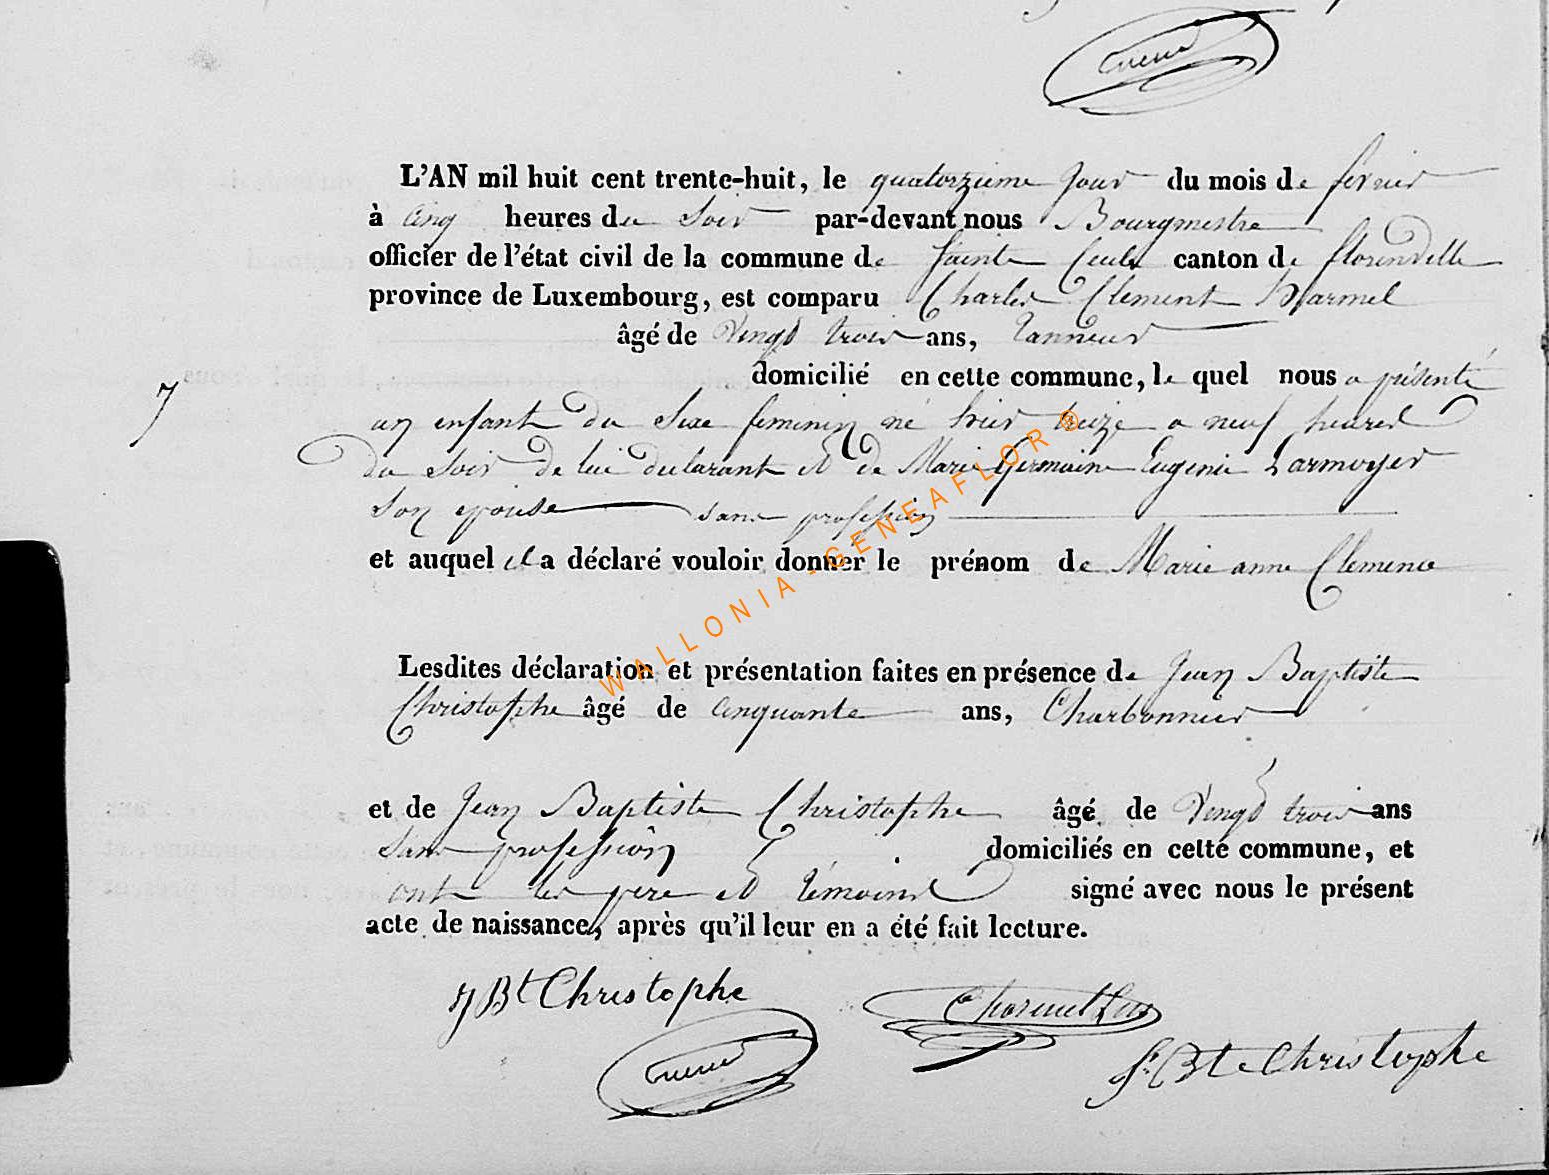 L'AN mil huit cent trente-huit, le quatorzieme jour du mois de fevrier
à cinq heures du soir par-devant nous Bourgmestre
officier de l'état civil de la commune de Sainte Cecile canton de florenville
province de Luxembourg, est comparu Charles Clement Harmel
âgé de vingt trois ans, tanneur
domicilié en cette commune, le quel nous a présenté
7
un enfant du Sexe feminin né hier treize a neuf heures
du soir de lui declarant et de Marie Germaine Eugenie Larmoyer
son epouse sans profession
et auquel il a déclaré vouloir donner le prénom de Marie anne Clemence
WALLONIA - GENEAFLOR ®
Lesdites déclaration et présentation faites en présence de Jean Baptiste
Christophe âgé de cinquante ans, Charbonnier
et de Jean Baptiste Christophe âgé de vingt trois ans
sans profession domiciliés en cette commune, et
ont les pere et témoins signé avec nous le présent
acte de naissance, après qu'il leur en a été fait lecture.
J Bt Christophe
J. Bte Christophe